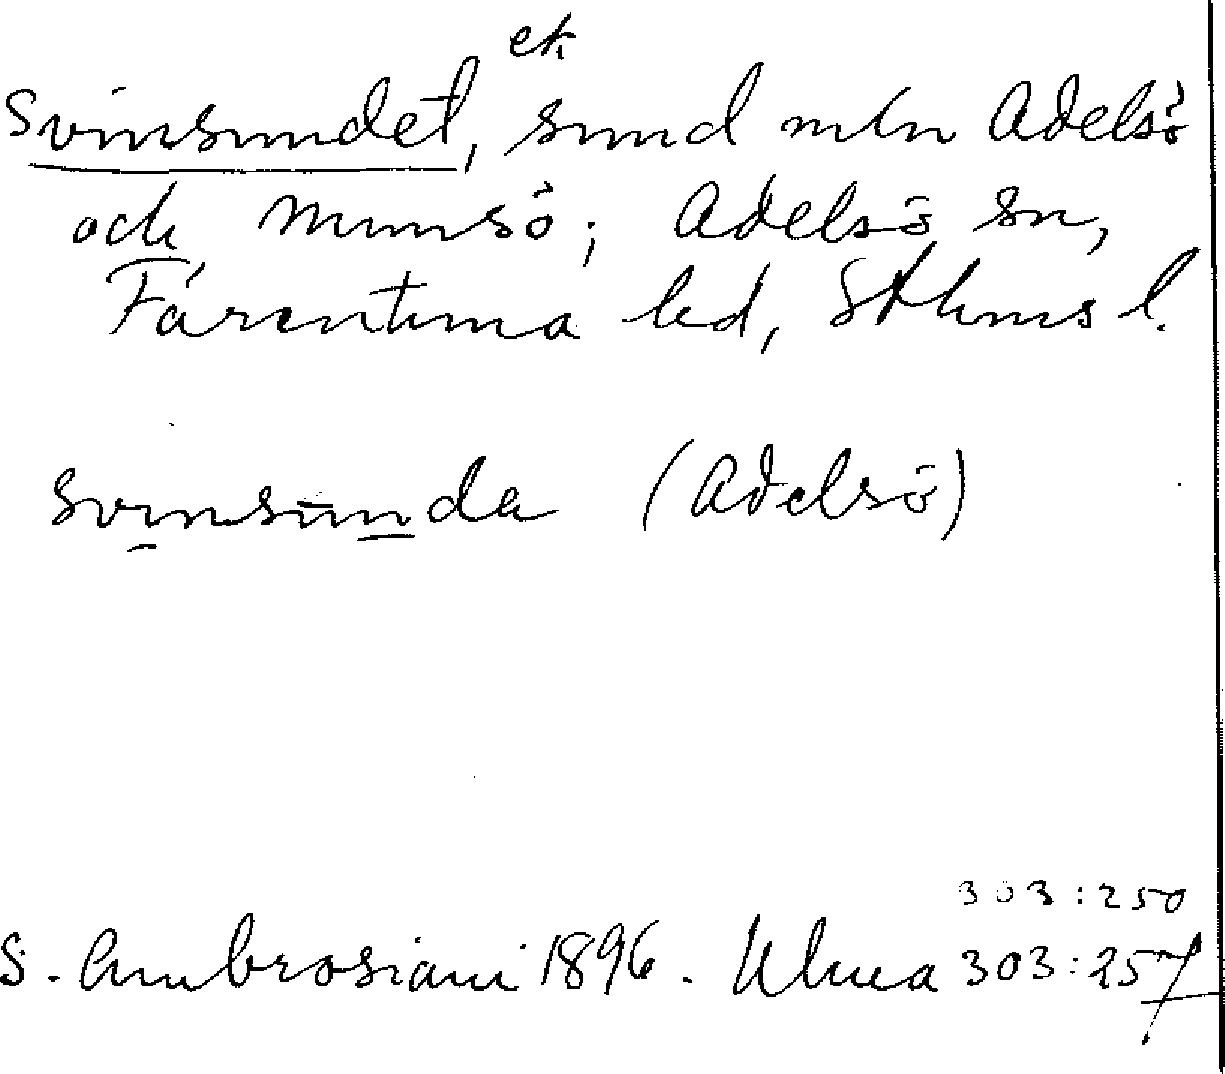 ek
Svinsundet, sund mln Adelsö
och Munsö; Adelsö sn,
Färentuna hd, Sthms l.
svinsunda (Adelsö)
303:250
S. Ambrosiani 1896. Ulma 303:257